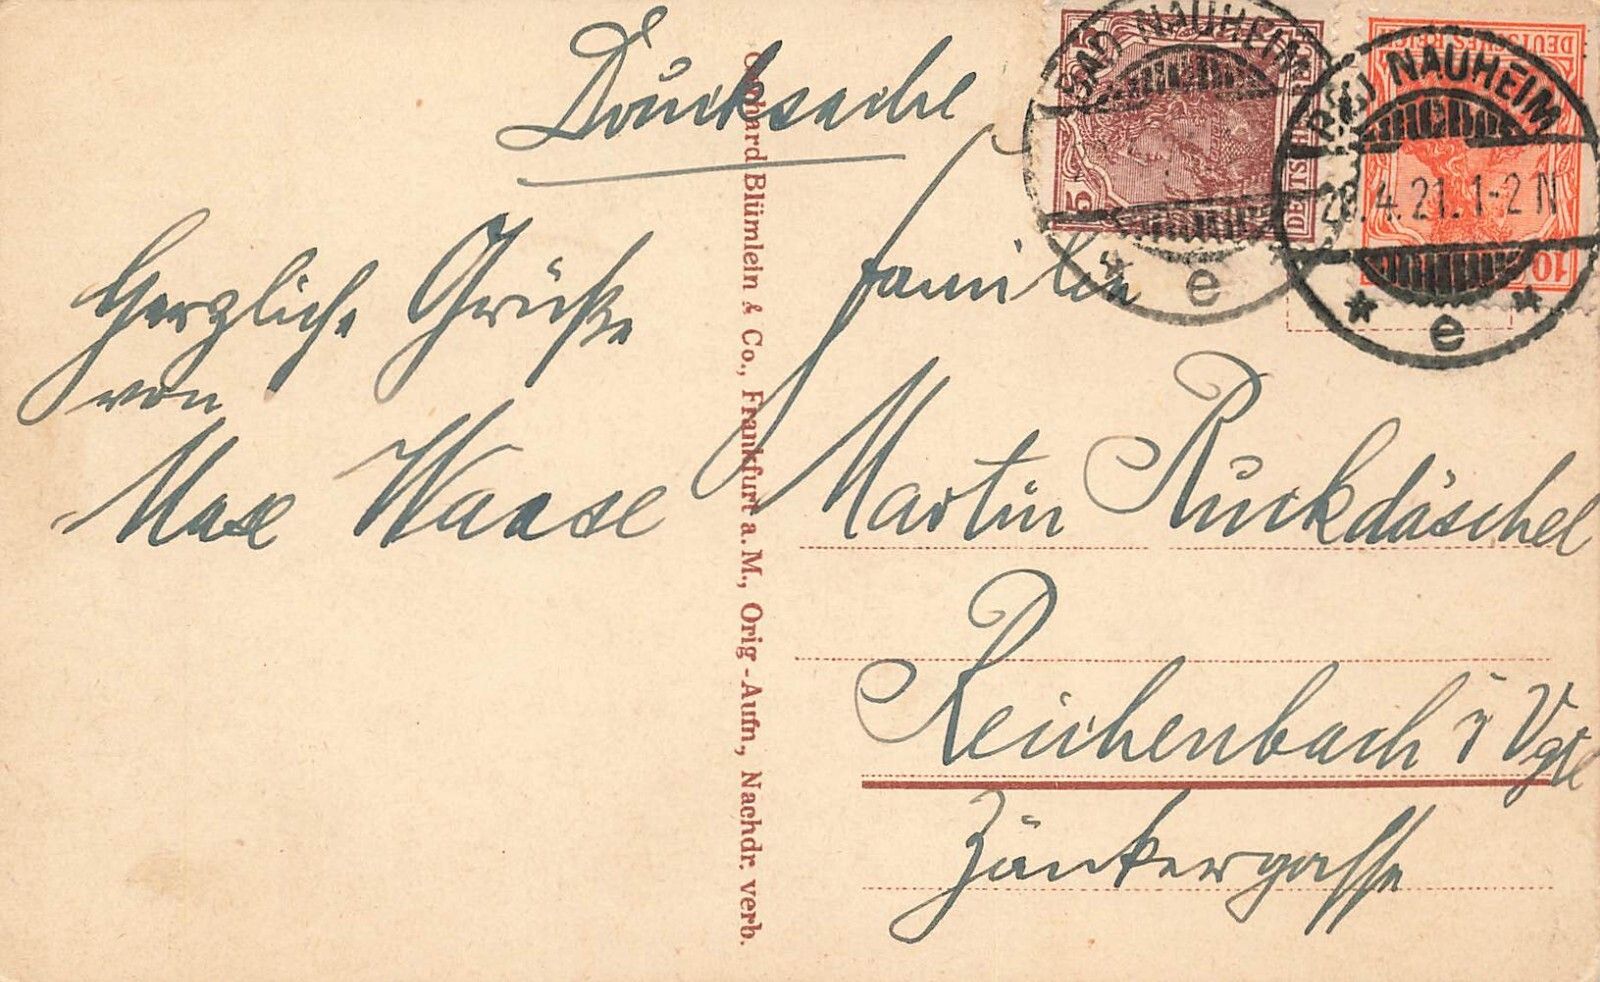 Drucksache
Herzliche Grüße
von
Max Waase
Gebhard Blümlein & Co., Frankfurt a. M., Orig-Aufn., Nachdr. verb.
BAD NAUHEIM
e
BAD NAUHEIM
28.4.21.1-2N
e
5
DEUTSCHES REICH
10
Familie
Martin Ruckdäschel
Reichenbach i Vgtl
Zänkergasse